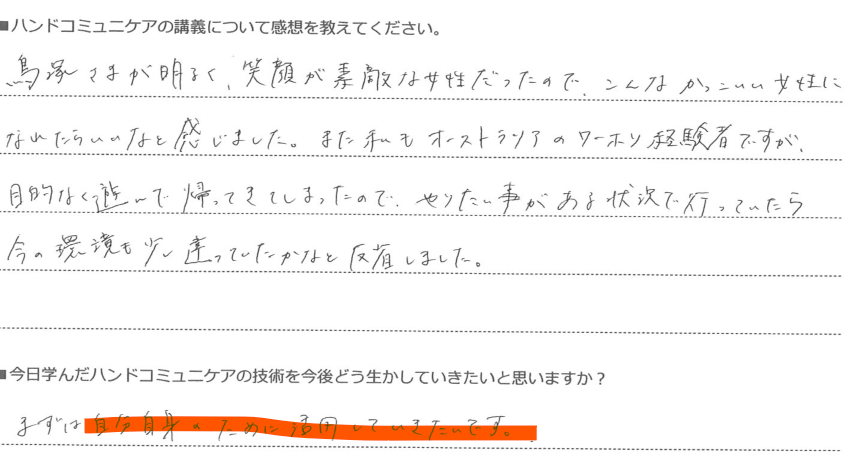 ■ハンドコミュニケアの講義について感想を教えてください。
鳥塚さまが明るく、笑顔が素敵な女性だったので、こんなかっこいい女性に
なれたらいいなと感じました。また私もオーストラリアのワーホリ経験者ですが、
目的なく遊んで帰ってきてしまったので、やりたい事がある状況で行っていたら
今の環境も少し違っていたかなと反省しました。
■今日学んだハンドコミュニケアの技術を今後どう生かしていきたいと思いますか？
まずは自分自身のために活用していきたいです。